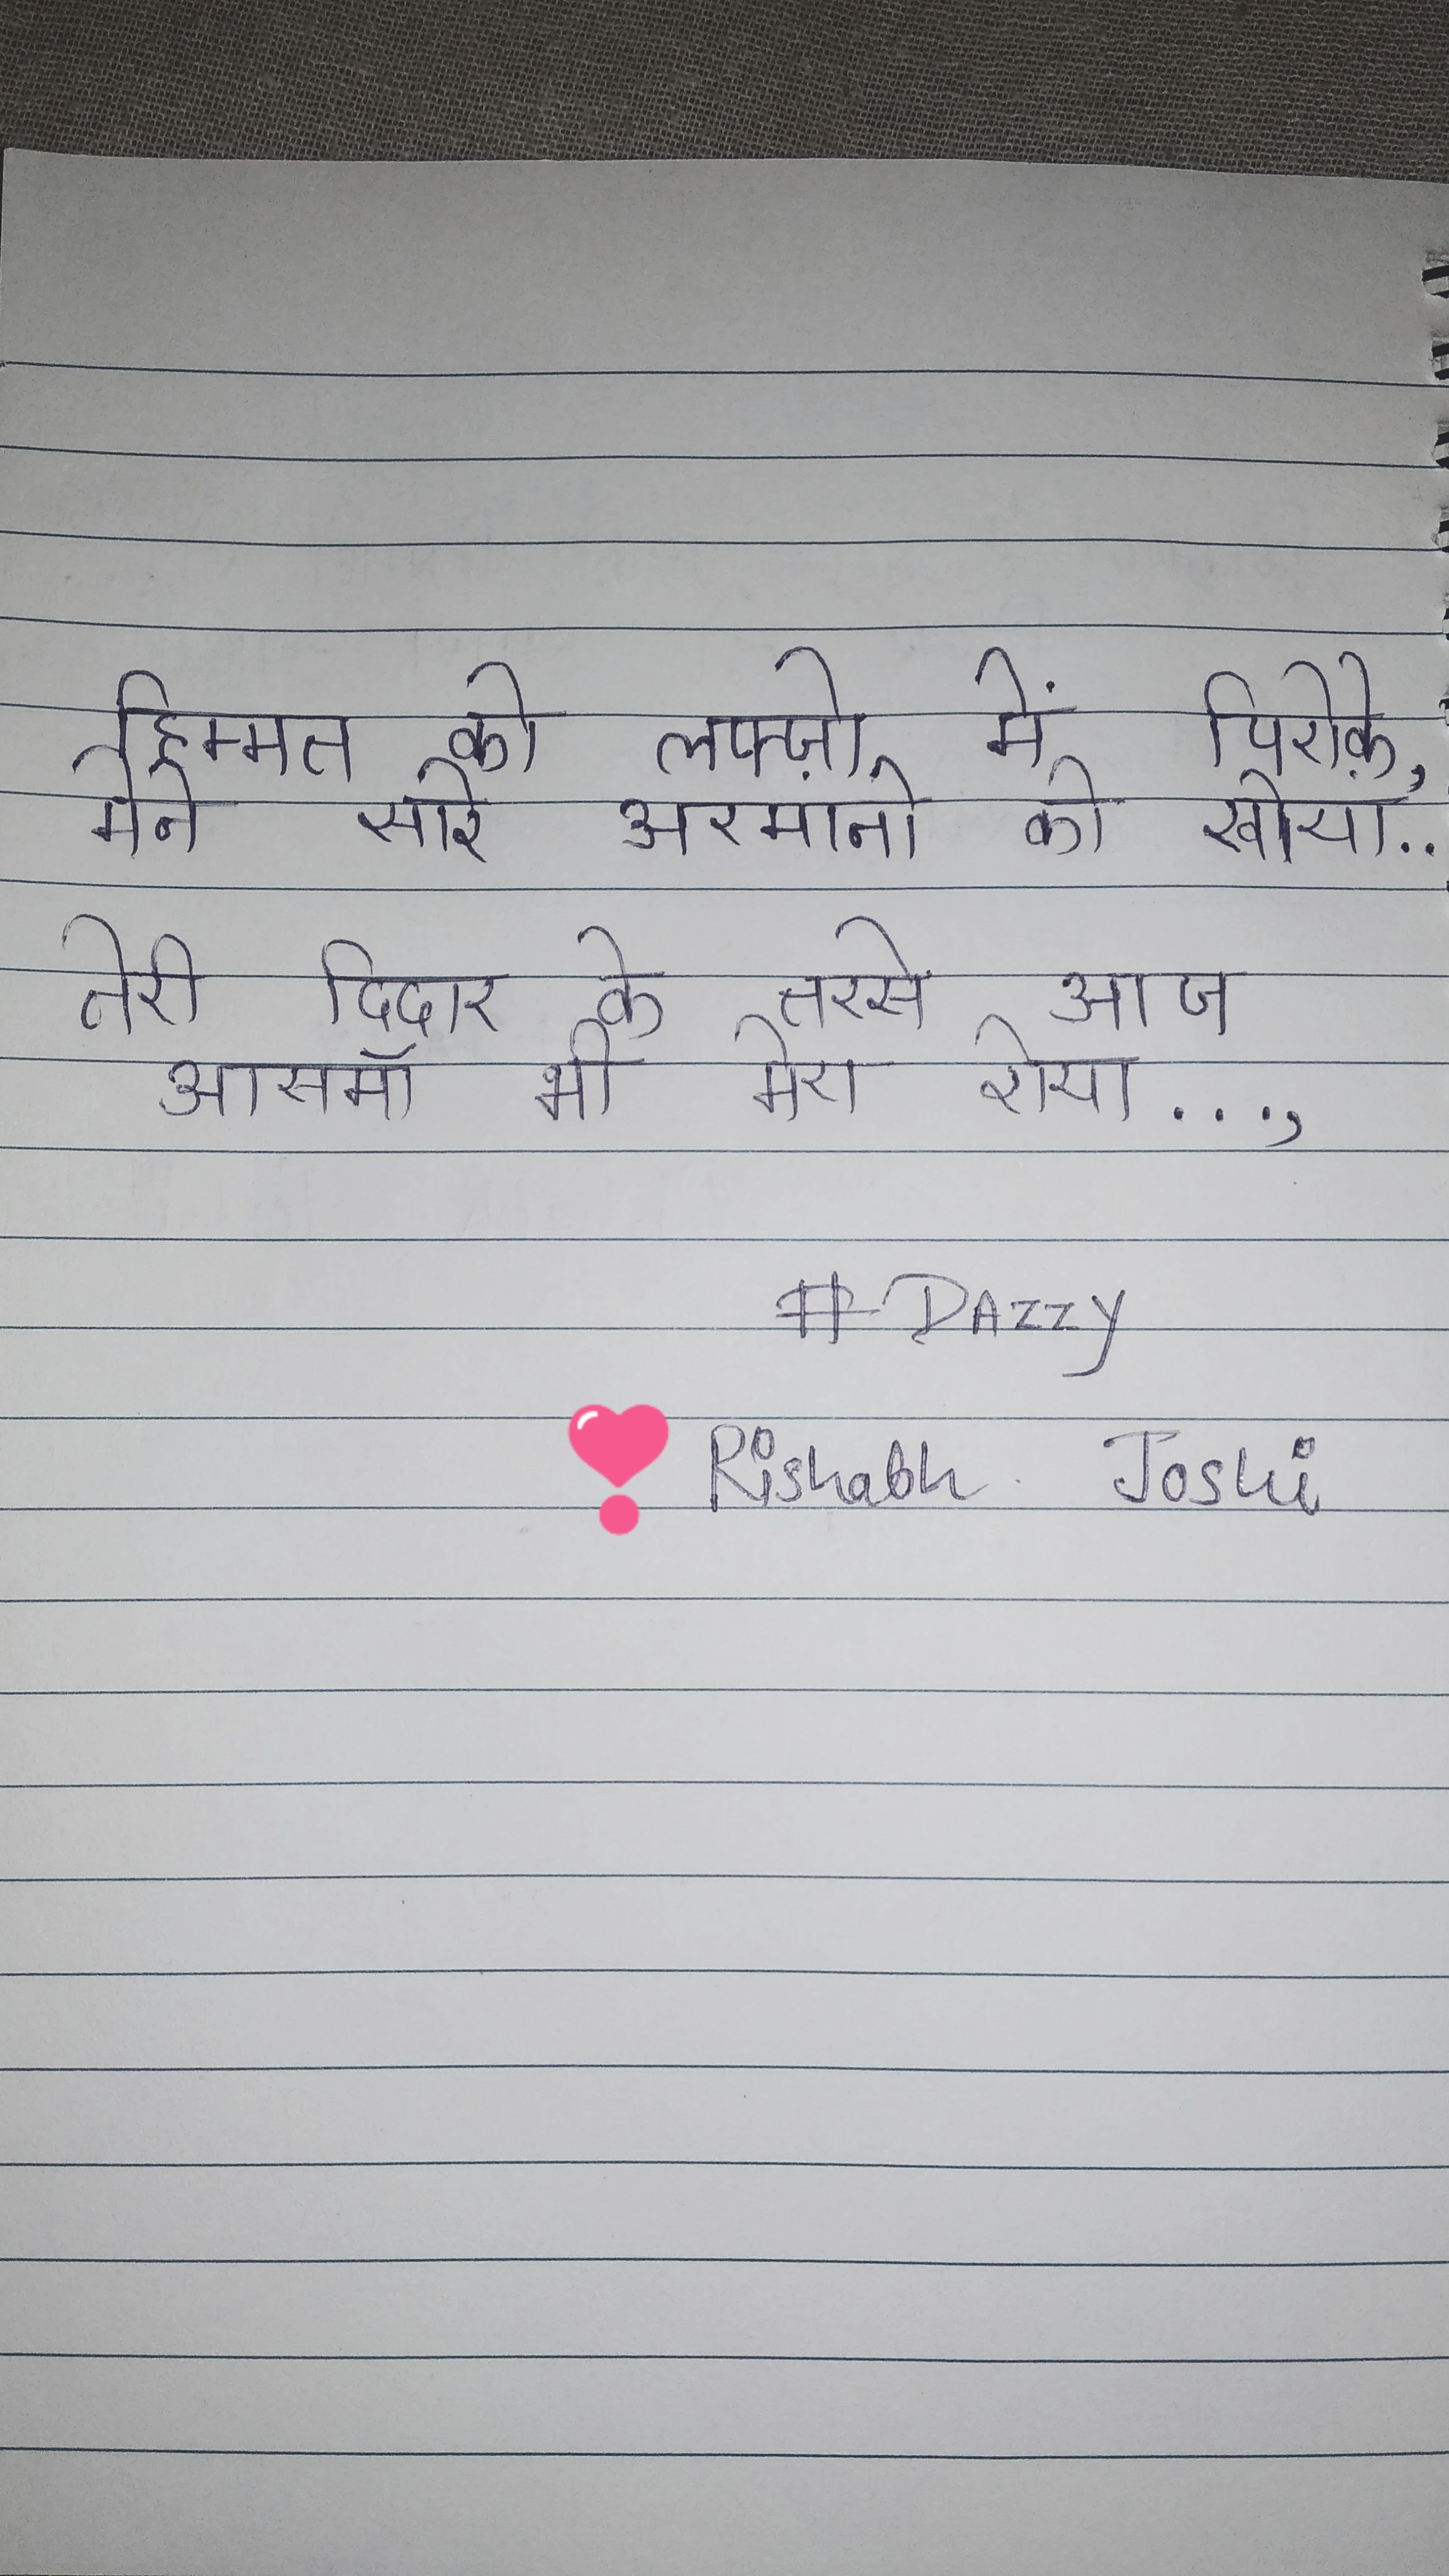 हिम्मत को लफ्ज़ो में पिरोके़,
मेने सारे अरमानो को खोया..
तेरी दिदार के तरसे आज
आसमॉ भी मेरा रोया...,
#DAZZY
Rishabh Joshi